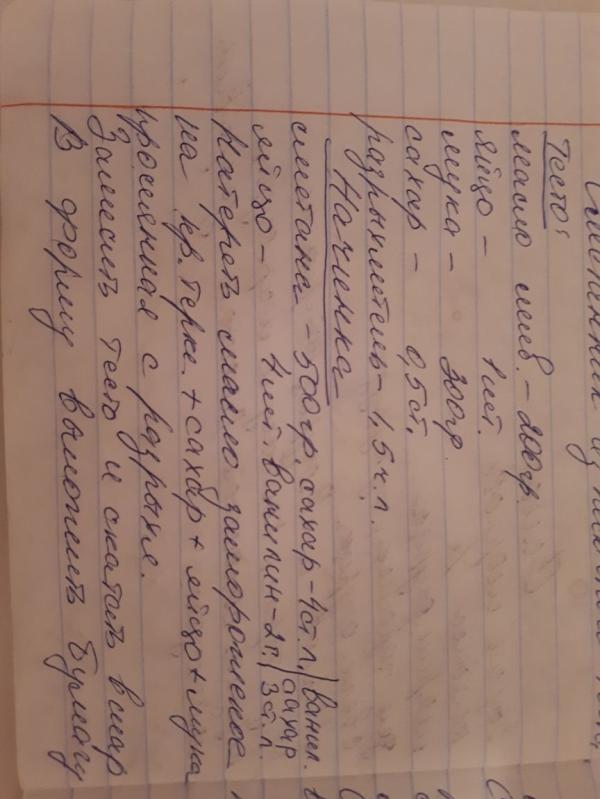 из песочного теста,
Тесто:
масло слив. - 200гр.
яйцо - 1шт.
мука - 300гр.
сахар - 0,5 ст.
разрыхлитель - 1,5 ч.л.
Начинка
сметана - 500гр. сахар - 4ст.л. / ванил.
яйцо - 1шт. ванилин - 2г. / сахар 3ст.л.
Натереть масло замороженое
на кр. терке. + сахар + яйцо + мука
просеянная с разрыхл.
Замесить тесто и скатать в шар
В форму выложить бумагу